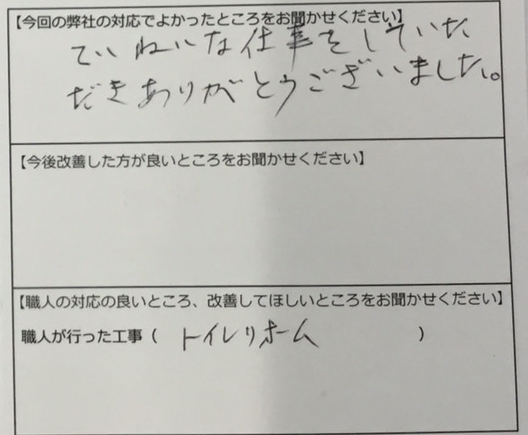 【今回の弊社の対応でよかったところをお聞かせください】
ていねいな仕事をしていた
だきありがとうございました。
【今後改善した方が良いところをお聞かせください】
【職人の対応の良いところ、改善してほしいところをお聞かせください】
職人が行った工事（ トイレリホーム ）